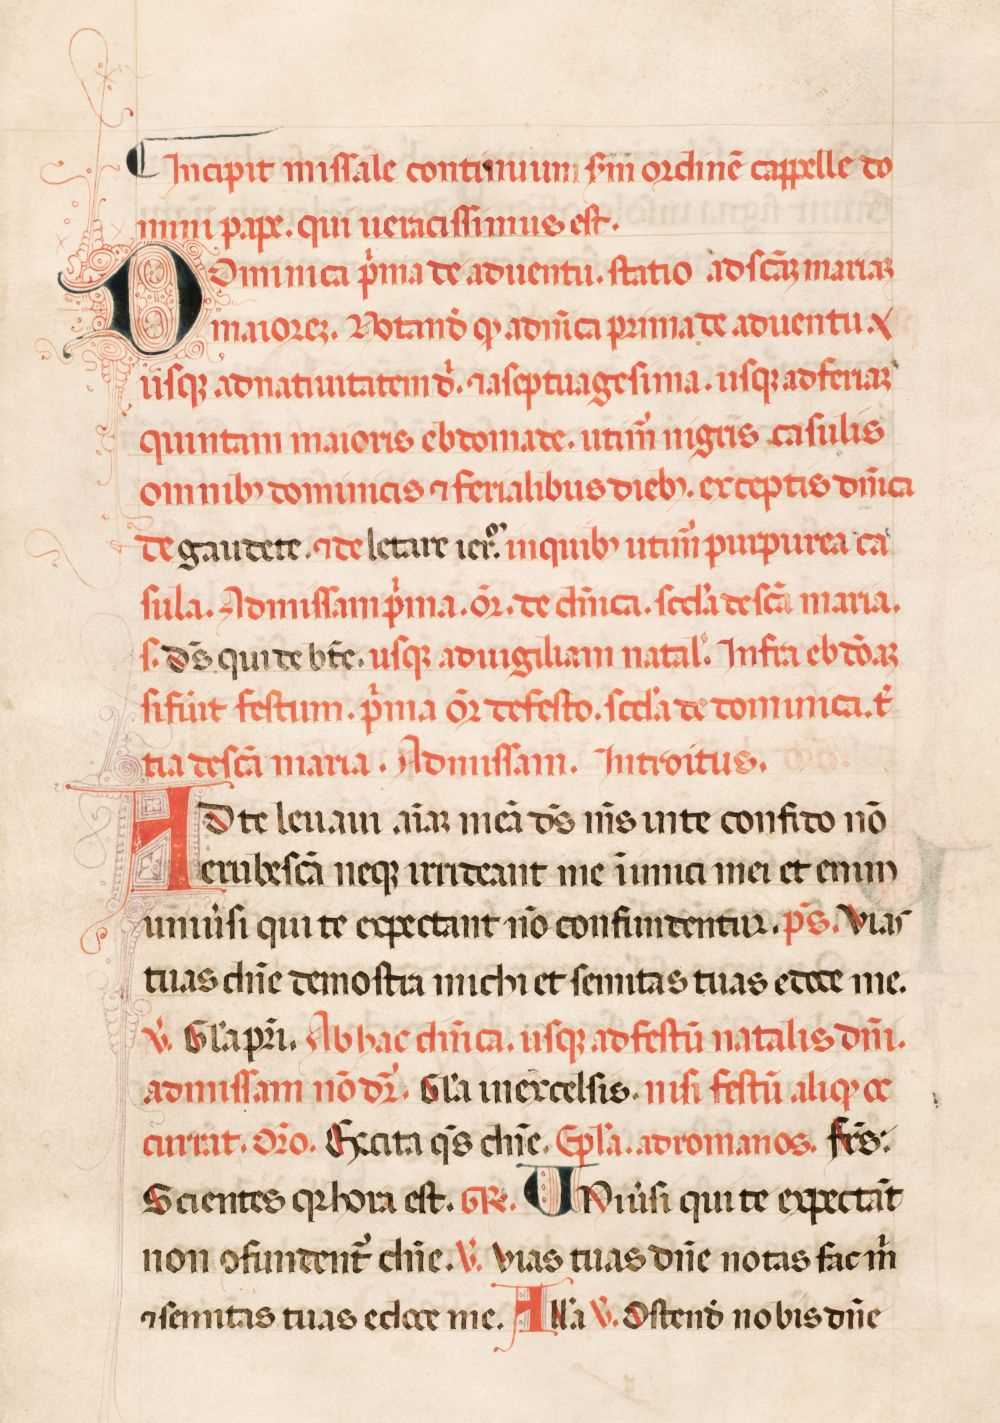 Incipit missale continuum scḋm ordinē cappelle do
mini pape. qui ueracissimus est.
Dominica pͥma de aduentu. statio ad scāꝝ mariaꝝ
maiorez. Notand̄ qꝫ adnīca prima de aduentu. ⁊
usqꝫ ad natiuitatem dͥ. ⁊ a septuagesima. usqꝫ ad feriaꝝ
quintam maioris ebdomade. utim̄ nigris casulis
omnibꝰ dominicis ⁊ ferialibus diebꝫ. exceptis dn̄ica
de gaudete. ⁊ de letare ier̄. in quibꝰ utim̄ purpurea ca
sula. Ad missam pͥma. ōr. de dn̄ica. scd̓a de scā maria.
s. dꝰs qui de bt̄e. usqꝫ ad uigiliam natal̓. Infra ebdōaꝝ
si fūit festum. pͥma ōr de festo. scd̓a de dominica. t̓
tia de scā maria. Ad missam. Introitus.
AD te leuaui aīaꝝ meā dꝰs mꝰs in te confido nō
erubescā neqꝫ irrideant me īimici mei et enim
uniu̓si qui te expectant nō confundentur. pꝰs. Vias
tuas dn̄e demostra michi et semitas tuas edoce me.
V̓. Gl̓a pri̅. Ab hac dn̄ica. usqꝫ ad festū natalis dn̄i.
ad missam nō dr̄. Gl̓a in excelsis. nisi festū aliqꝫ oc
currat. Or̄o. Excita qꝰs dn̄e. Epl̓a. ad romanos. fr̄s:
Scientes qꝛ hora est. GR̄. Vniu̓si qui te expectāt
non ꝯfundent᷑ dn̄e. V̓. Vias tuas dn̄e notas fac m̄
⁊ semitas tuas edoce me. All̓a V̓. Ostend̄ nobis dn̄e